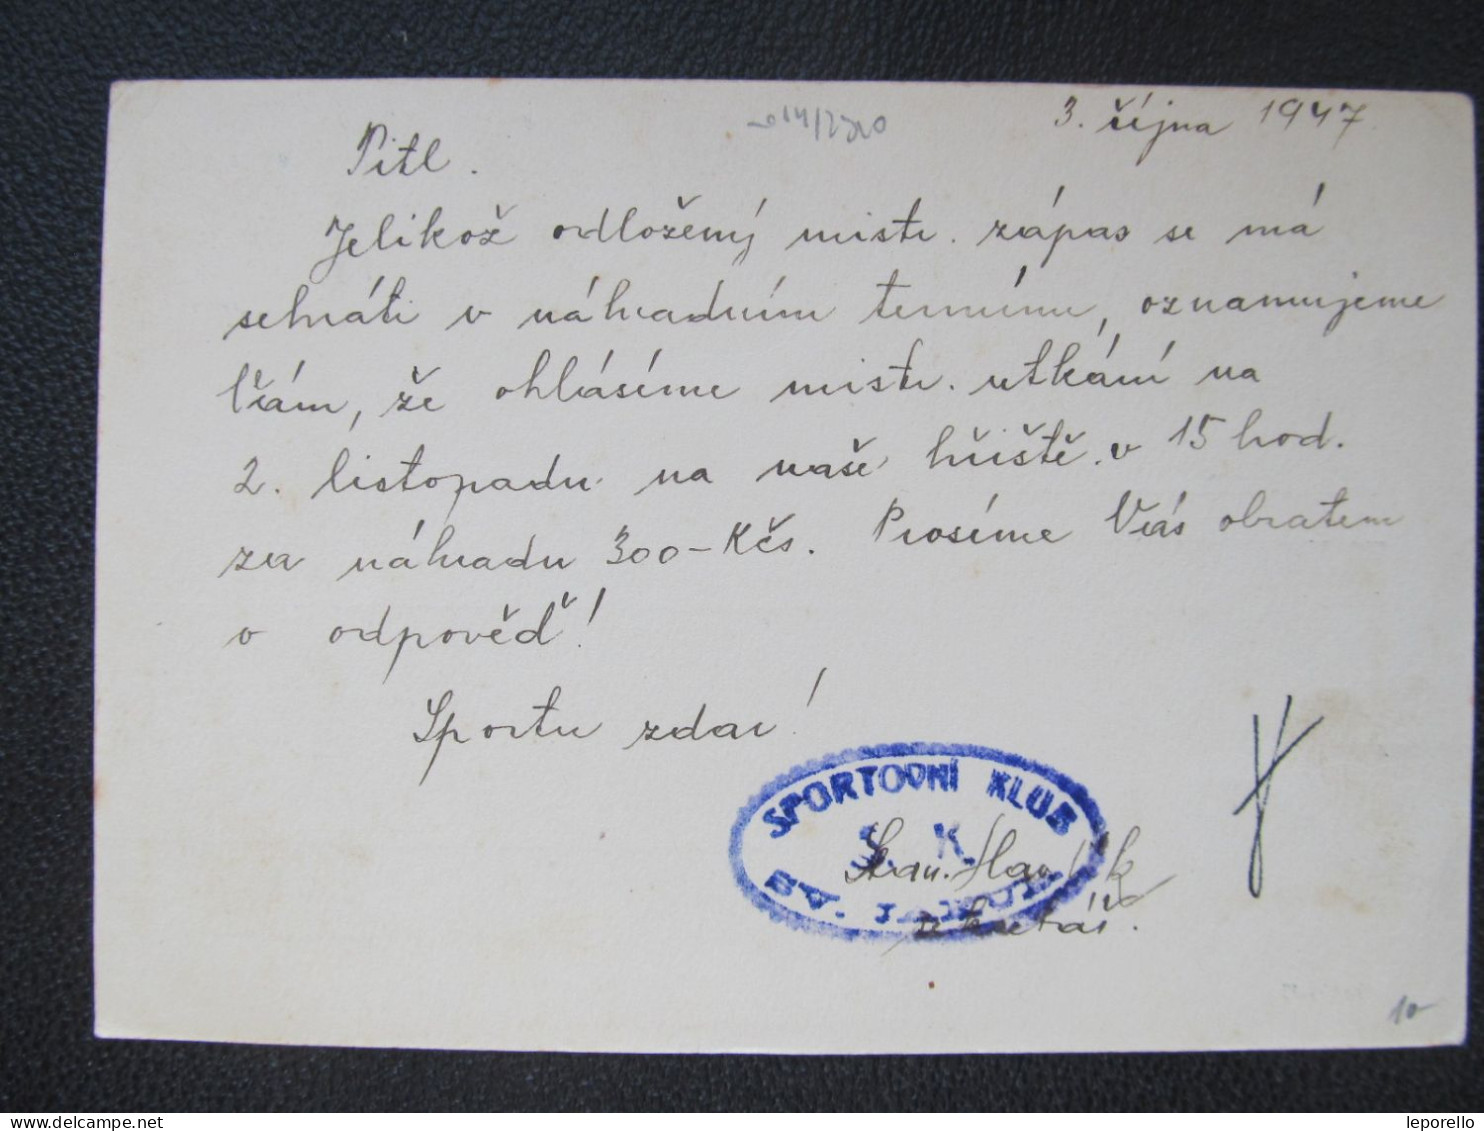 3. října 1947
Pitl.
Jelikož odložený mistr. zápas se má
sehráti v náhradním termínu, oznamujeme
Vám, že ohlásíme mistr. utkání na
2. listopadu na naše hřiště v 15 hod.
za náhradu 300-Kčs. Prosíme Vás obratem
o odpověď!
Sportu zdar!
SPORTOVNÍ KLUB
S. K.
SV.
sekretář.
10
delcampe.net
leporello